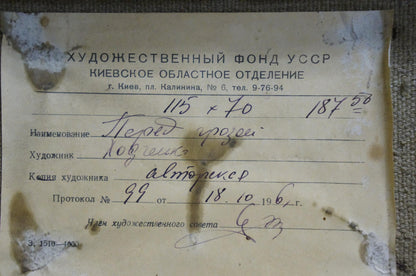 ХУДОЖЕСТВЕННЫЙ ФОНД УССР
КИЕВСКОЕ ОБЛАСТНОЕ ОТДЕЛЕНИЕ
г. Киев, пл. Калинина, № 6, тел. 9-76-94
115 х 70 187 50
Наименование Перед грозой
Художник
Копия художника авторская
Протокол № 99 от 18. 10 196 г.
Член художественного совета
З. 1510—